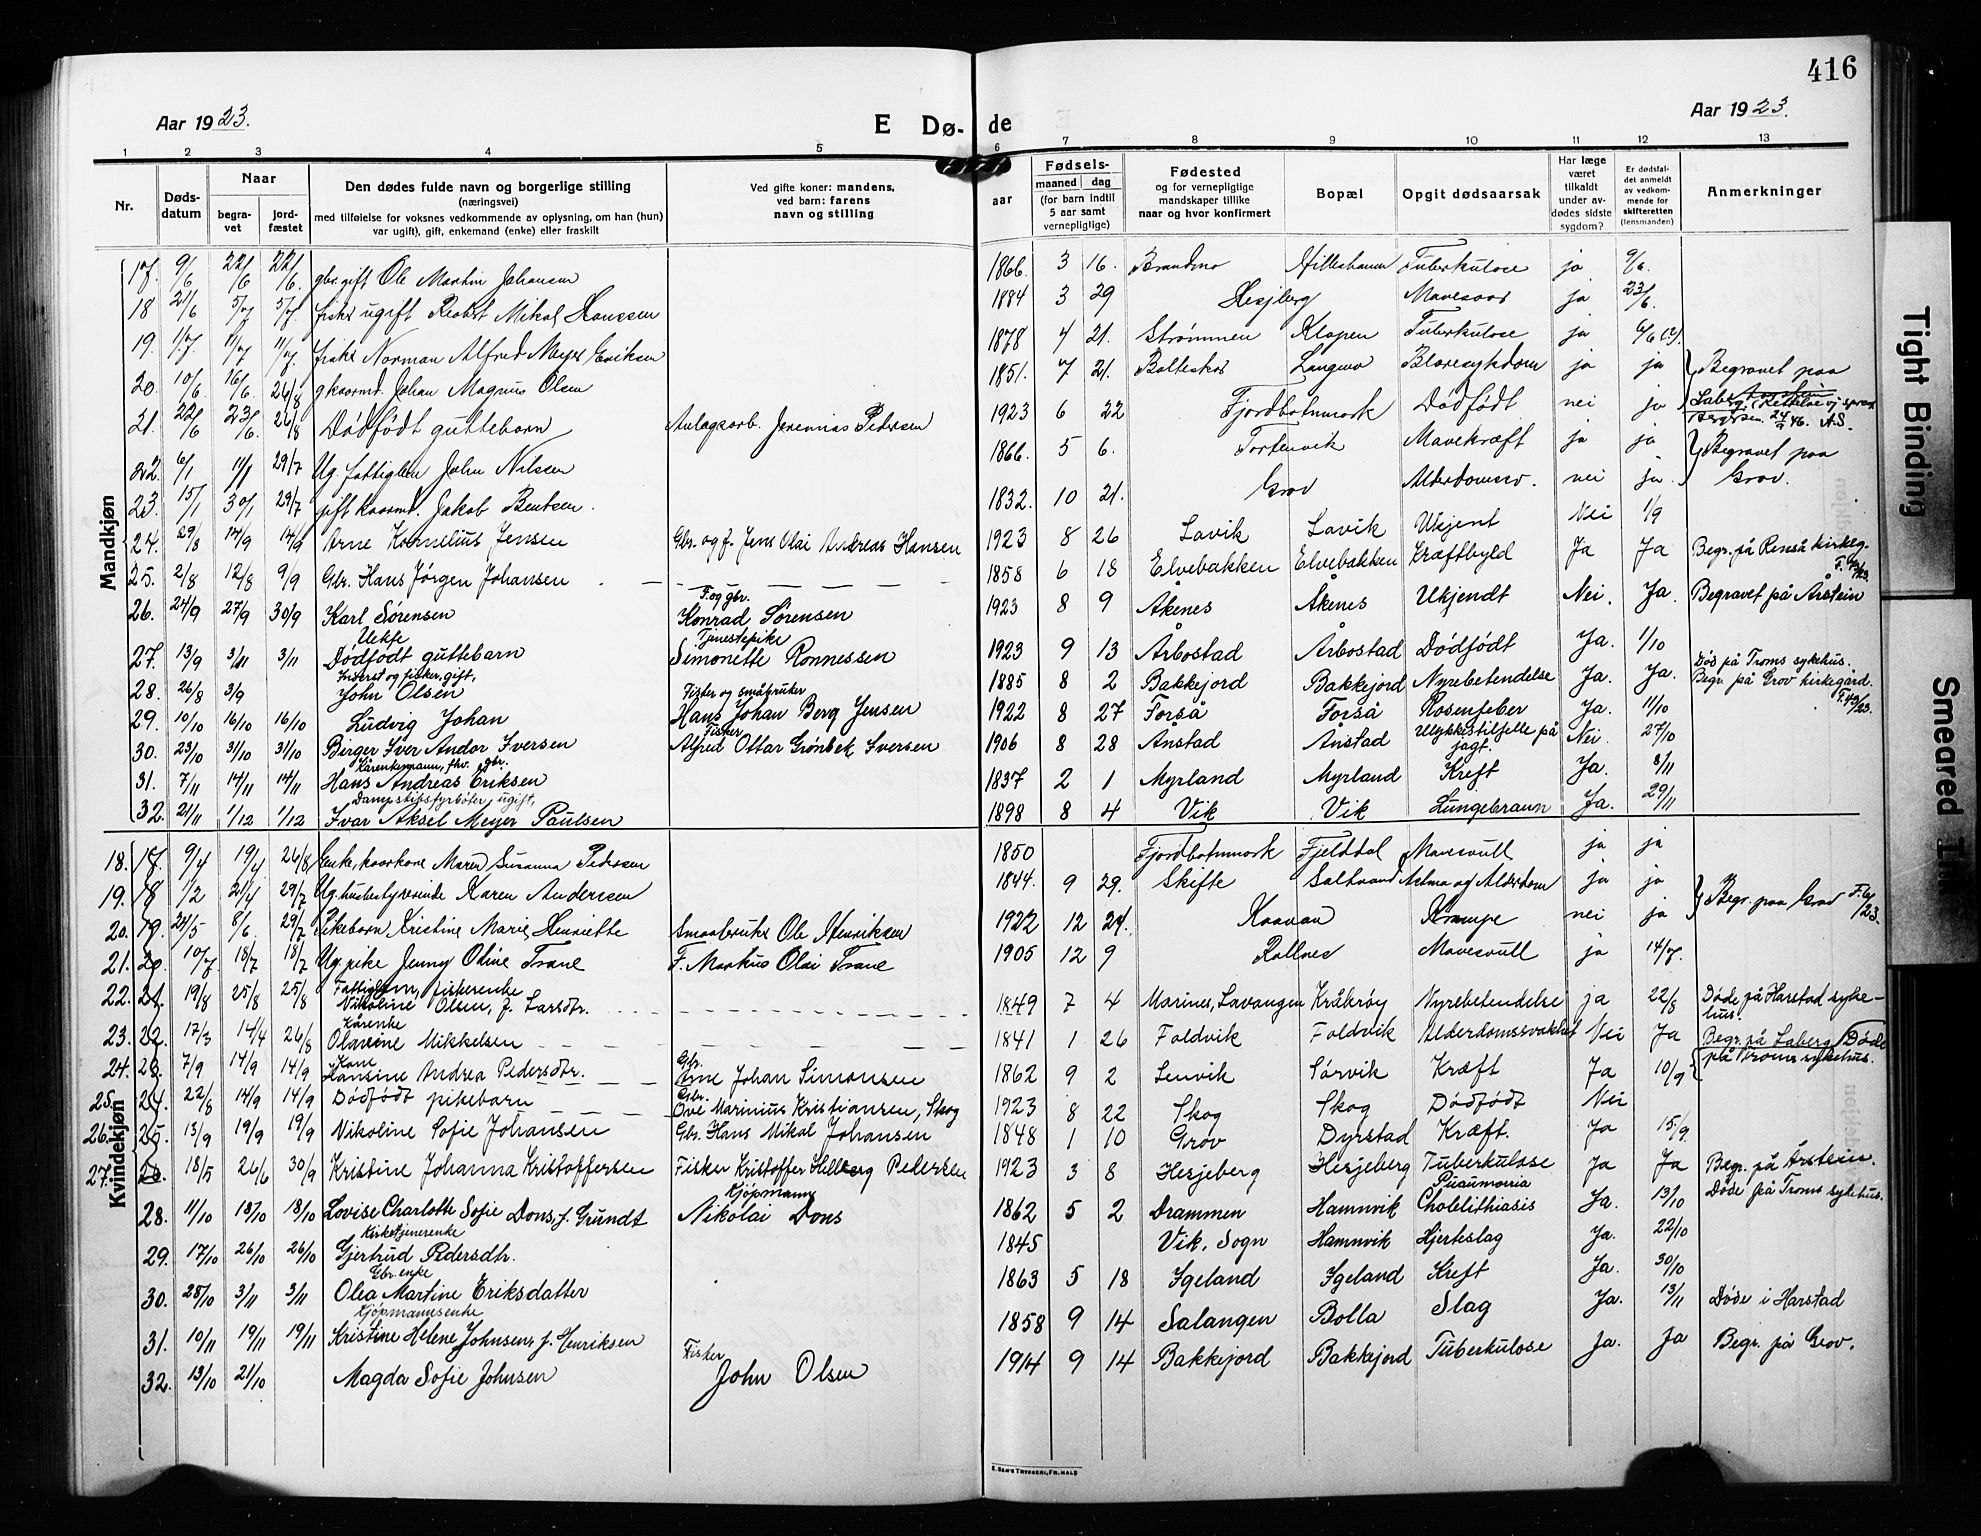 416
Aar 1923.
E Dø-de
Aar 1923.
1 2 3 4 5 6 7 8 9 10 11 12 13
Nr.
Døds-datum
Naar
begra-vet
jord-fæstet
Den dødes fulde navn og borgerlige stilling
(næringsvei)
med tilføielse for voksnes vedkommende av oplysning, om han (hun)
var ugift), gift, enkemand (enke) eller fraskilt
Ved gifte koner: mandens,
ved barn: farens
navn og stilling
Fødsels-
aar
maaned dag
(for barn indtil
5 aar samt
vernepligtige)
Fødested
og for vernepligtige
mandskaper tillike
naar og hvor konfirmert
Bopæl
Opgit dødsaarsak
Har læge
været
tilkaldt
under av-
dødes sidste
sygdom?
Er dødsfal-
det anmeldt
av vedkom-
mende for
skifteretten
(lensmanden)
Anmerkninger
Mandkjøn
17. 9/6 22/6 22/6. gbr. gift Ole Martin Johansen 1866. 3 16. Brandmo Tuberkulose ja 9/6.
18 21/6 5/7 5/7 fisker ugift Mikal Hanssen 1884 3 29 Hesjberg ja 23/6.
19. 1/7. 11/7 11/7 Norman Alfred Meyer Eriksen 1878 4 21. Strømmen Tuberkulose ja
20. 10/6 16/6. 26/8 Johan Magnus Olsen 1851. 7 21. Blæresykdom ja ja Begravet paa
21. 22/6 23/6. 26/8 Dødfødt guttebarn Anlægsarb. Jeremias Pedersen 1923 6 22 Fjordbotnmark Dødfødt nei ja
22. 6/1 11/1 29/7 Ug. fattiglem John Nilsen 1866. 5 6. Mavekræft ja ja Begravet paa
23. 15/1 30/1 29/7 gift kaarmd. Jakob Bentsen. 1832. 10 21. Grov nei ja. Grov.
24. 29/8 14/9 14/9 Arne Kornelius Jensen Gbr. og f. Jens Olai Andreas Hansen 1923 8 26 Lavik Lavik Ukjent Nei 1/9
25. 2/8 12/8 9/9 Gbr. Hans Jørgen Johansen 1858 6 18 Elvebakken Elvebakken Kræftbyld Ja Ja Begr. på Renså kirkeg.
F. og gbr.
26. 24/9 27/9 30/9 Karl Sørensen Konrad Sørensen 1923 8 9 Åkenes Åkenes Ukjendt Nei. Ja. Begravet på Årstein
Uekte Tjenestepike
27. 13/9 3/11 3/11 Dødfødt guttebarn Simonette Ronnessen 1923 9 13 Årbostad Årbostad Dødfødt Ja. 1/10
Inderst og fisker, gift, Død på Troms sykehus.
28. 26/8 3/9 John Olsen 1885 8 2 Bakkejord Bakkejord Nyrebetendelse Ja. Ja. Begr. på Grov kirkegård.
Fisker og småbruker
29. 10/10 16/10 16/10 Ludvig Johan Hans Johan Berg Jensen 1922 8 27 Forså Forså Rosenfeber Ja. 11/10
Fisker
30. 23/10 31/10 31/10 Birger Iver Andor Iversen Alfred Ottar Grønbek Iversen 1906 8 28 Ånstad Ånstad Ulykkestilfelle på jagt. Nei. 27/10
Kårenkemann, fhv. gbr.
31. 7/11 14/11 14/11 Hans Andreas Eriksen 1837 2 1 Myrland Myrland Kreft Ja. 8/11
Dampskibsfyrbøter, ugift,
32. 21/11 1/12 1/12 Ivar Aksel Meyer Paulsen 1898 8 4 Vik Vik Ja. 29/11
Kvindekjøn
18. 17. 9/4 19/4 26/8 Enke, kaarkone Maren Susanna Pedersen 1850 Fjordbotnmark Fjelddal Mavesvull ja ja
19. 18 1/2 21/4 29/7 Ug. husbestyrerinde Karen Andersen 1844. 9 29. Skifte Astma og Alderdom ja ja Begr. paa Grov
20. 19. 24/5 8/6. 29/7 Pikebarn Kristine Marie Henriette Smaabruker Ole Henriksen 1922 12 24. Krampe nei ja
21. 20 10/7 18/7 18/7 Ug. pike Jenny Odine Trane F. Markus Olai Trane 1905 12 9 Rollnes Mavesvull ja 14/7.
Fattiglem, fiskerenke
22. 21. 19/8 25/8 25/8 Nikoline Olsen, f. Larsdtr. 1849 7 4 Marines, Lavangen Kråkrøy Nyrebetendelse ja 22/8 Døde på Harstad syke-hus.
Kårenke
23. 22. 17/3 14/4 26/8 Olavine Mikkelsen 1841 1 26 Foldvik Foldvik Alderdomssvakhet Nei Ja Begr. på Laberg
Kone Gbr. Døde
24. 23. 7/9 14/9 14/9 Hansine Andrea Pedersdtr. Arne Johan Simonsen 1862 9 2 Lenvik Sørvik Kræft Ja 10/9 på Troms sykehus.
Gbr.
25. 24. 22/8 14/9 14/9 Dødfødt pikebarn Ove Marinius Kristiansen, Skog 1923 8 22 Skog Skog Dødfødt Nei
26. 25. 13/9 19/9 19/9 Nikoline Sofie Johansen Gbr. Hans Mikal Johansen 1848 1 10 Grov Dyrstad Kræft. Ja 15/9.
27. 26. 18/5 26/6 30/9 Kristine Johanna Kristoffersen Fisker Kristoffer Hellberg Pedersen 1923 3 8 Hesjeberg Hesjeberg Tuberkulose Ja Ja Begr. på Årstein.
Kjøpmann
28. 11/10 18/10 18/10 Lovise Charlotte Sofie Dons, f. Grundt Nikolai Dons 1862 5 2 Drammen Hamnvik Cholelithiasis Ja. 13/10 Døde på Troms sykehus.
Kirketjenerenke
29. 17/10 26/10 26/10 Gjertrud Pedersdtr. 1845 Vik, Sogn Hamnvik Hjerteslag Ja. 22/10
Gbr. enke
30. 25/10 3/11 3/11 Olea Martine Eriksdatter 1863 5 18 Igeland Igeland Kreft Ja. 30/10
Kjøpmannsenke
31. 10/11 19/11 19/11 Kristine Helene Johnsen, f. Henriksen 1858 9 14 Salangen Bolla Slag Ja. 13/11 Døde i Harstad
Fisker
32. 13/10 21/10 Magda Sofie Johnsen John Olsen 1914 9 14 Bakkejord Bakkejord Tuberkulose Ja. Ja Begr. på Grov.
E. SEM'S TRYKKERI, FR.HALD
Tight Binding
Smeared Ink